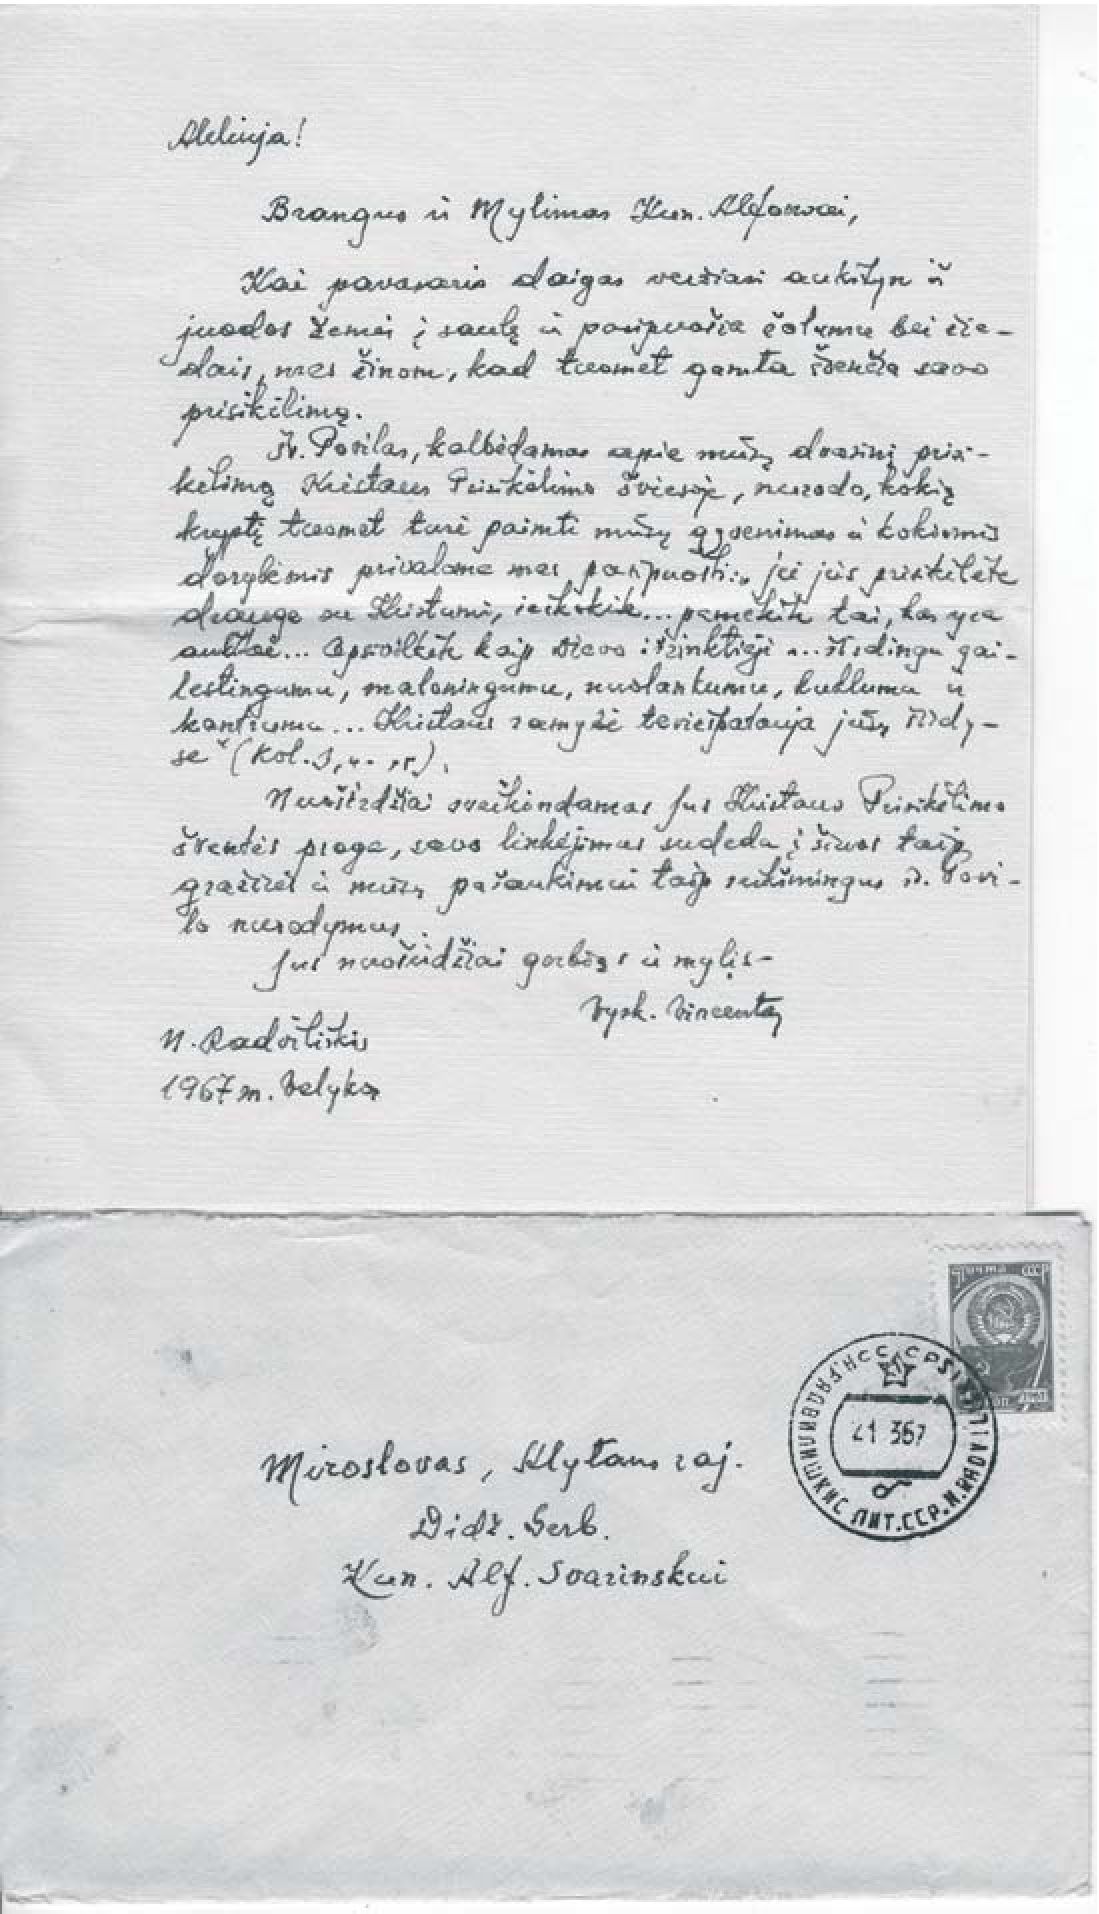 Aleliuja!
Brangus ir Mylimas Kun. Alfonsai,
Kai pavasario daigas veržiasi aukštyn iš
juodos žemės į saulę ir pasipuošia žalumu bei žie-
dais, mes žinom, kad tuomet gamta švenčia savo
prisikėlimą.
Šv. Povilas, kalbėdamas apie mūsų dvasinį prisi-
kėlimą Kristaus Prisikėlimo šviesoje, nurodo, kokią
kryptį tuomet turi paimti mūsų gyvenimas ir kokiomis
dorybėmis privalome mes pasipuošti: „jei jūs prisikėlėte
drauge su Kristumi, ieškokite... pamėkite tai, kas yra
aukštai... Apsivilkite kaip Dievo išrinktieji ... širdingu gai-
lestingumu, maloningumu, nuolankumu, kuklumu ir
kantrumu... Kristaus ramybė teviešpatauja jūsų širdy-
se“ (Kol. 3,
Nuoširdžiai sveikindamas Jus Kristaus Prisikėlimo
šventės proga, savo linkėjimus sudedu į šiuos taip
gražius ir mūsų pašaukimui taip reikšmingus šv. Povi-
lo nurodymus.
Jus nuoširdžiai gerbiąs ir mylįs—
Vysk. Vincentas
N. Radviliškis
1967 m. Velykos
ПОЧТА СССР
1961
ЛИТ.ССР. N. RADVILI
21 367
Miroslavas, Alytaus raj.
Didž. Gerb.
Kun. Alf. Svarinskui